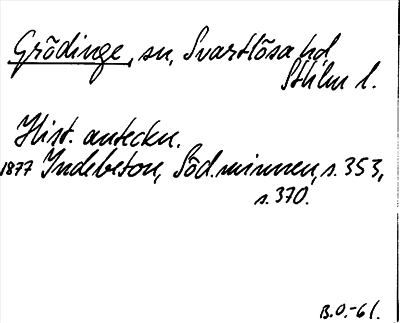 Grödinge, sn, Svartlösa hd
Sthlm l.
Hist. anteckn.
1877 Indebetou, Söd.minnen, s. 353,
s. 370.
B.O.-61.